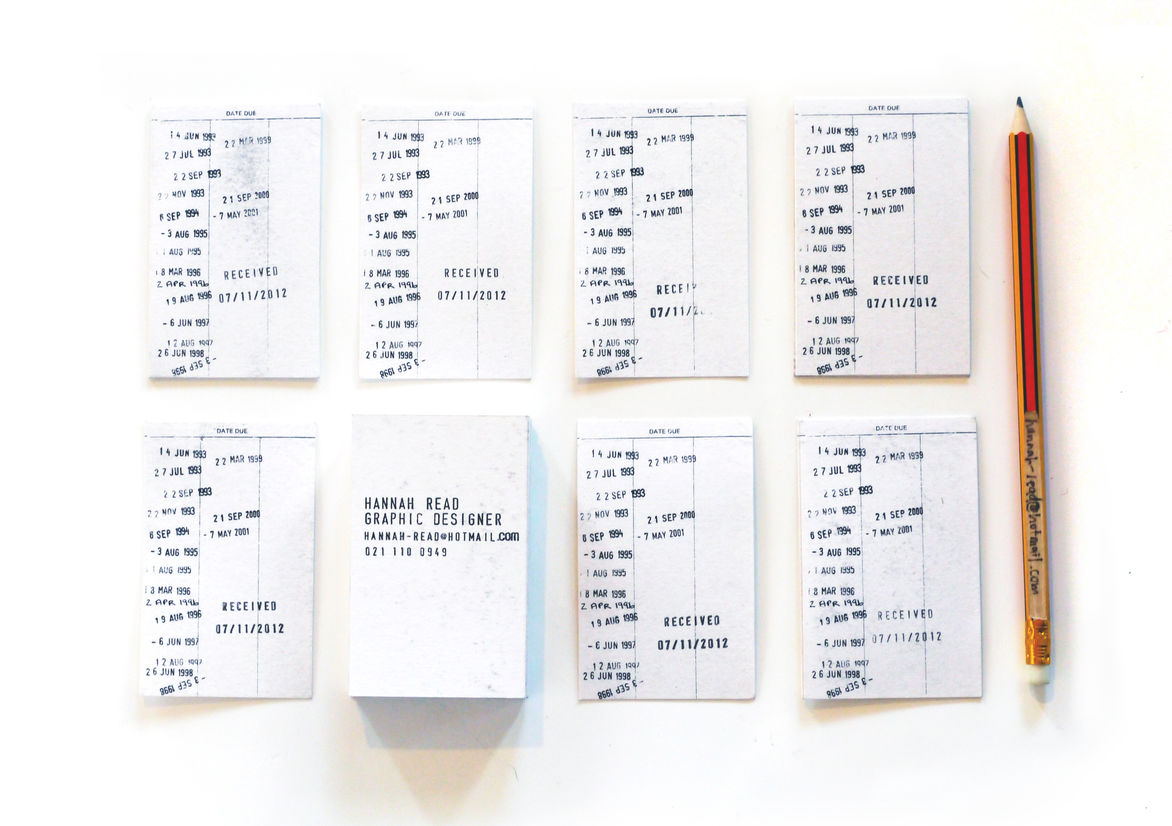 DATE DUE
14 JUN 1993
27 JUL 1993
22 SEP 1993
22 NOV 1993
6 SEP 1994
- 3 AUG 1995
1 AUG 1995
18 MAR 1996
2 APR 1996
19 AUG 1996
- 6 JUN 1997
12 AUG 1997
26 JUN 1998
- 3 SEP 1998
22 MAR 1999
21 SEP 2000
- 7 MAY 2001
RECEIVED
07/11/2012
DATE DUE
14 JUN 1993
27 JUL 1993
22 SEP 1993
22 NOV 1993
6 SEP 1994
- 3 AUG 1995
1 AUG 1995
18 MAR 1996
2 APR 1996
19 AUG 1996
- 6 JUN 1997
12 AUG 1997
26 JUN 1998
- 3 SEP 1998
22 MAR 1999
21 SEP 2000
- 7 MAY 2001
RECEIVED
07/11/2012
DATE DUE
14 JUN 1993
27 JUL 1993
22 SEP 1993
22 NOV 1993
6 SEP 1994
- 3 AUG 1995
1 AUG 1995
18 MAR 1996
2 APR 1996
19 AUG 1996
- 6 JUN 1997
12 AUG 1997
26 JUN 1998
- 3 SEP 1998
22 MAR 1999
21 SEP 2000
- 7 MAY 2001
RECEIV
07/11/2
DATE DUE
14 JUN 1993
27 JUL 1993
22 SEP 1993
22 NOV 1993
6 SEP 1994
- 3 AUG 1995
1 AUG 1995
18 MAR 1996
2 APR 1996
19 AUG 1996
- 6 JUN 1997
12 AUG 1997
26 JUN 1998
- 3 SEP 1998
22 MAR 1999
21 SEP 2000
- 7 MAY 2001
RECEIVED
07/11/2012
DATE DUE
14 JUN 1993
27 JUL 1993
22 SEP 1993
22 NOV 1993
6 SEP 1994
- 3 AUG 1995
1 AUG 1995
18 MAR 1996
2 APR 1996
19 AUG 1996
- 6 JUN 1997
12 AUG 1997
26 JUN 1998
- 3 SEP 1998
22 MAR 1999
21 SEP 2000
- 7 MAY 2001
RECEIVED
07/11/2012
HANNAH READ
GRAPHIC DESIGNER
HANNAH-READ@HOTMAIL.COM
021 110 0949
DATE DUE
14 JUN 1993
27 JUL 1993
22 SEP 1993
22 NOV 1993
6 SEP 1994
- 3 AUG 1995
1 AUG 1995
18 MAR 1996
2 APR 1996
19 AUG 1996
- 6 JUN 1997
12 AUG 1997
26 JUN 1998
- 3 SEP 1998
22 MAR 1999
21 SEP 2000
- 7 MAY 2001
RECEIVED
07/11/2012
DATE DUE
14 JUN 1993
27 JUL 1993
22 SEP 1993
22 NOV 1993
6 SEP 1994
- 3 AUG 1995
1 AUG 1995
18 MAR 1996
2 APR 1996
19 AUG 1996
- 6 JUN 1997
12 AUG 1997
26 JUN 1998
- 3 SEP 1998
22 MAR 1999
21 SEP 2000
- 7 MAY 2001
RECEIVED
07/11/2012
hannah-read@hotmail.com